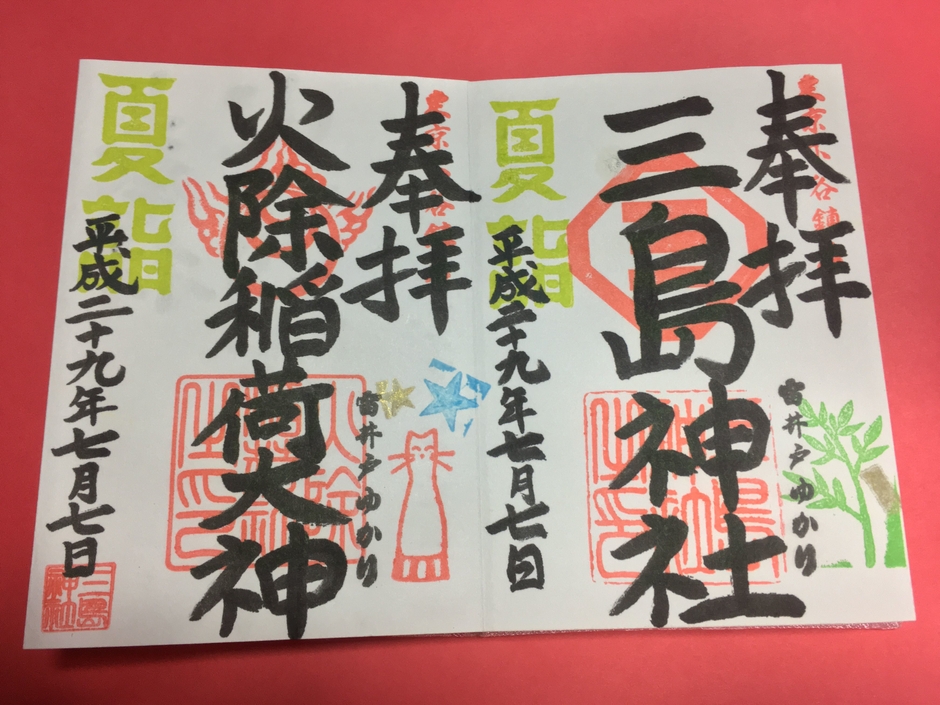 奉拝
三島神社
雷井戸ゆかり
夏詣
平成二十九年七月七日
奉拝
火除稲荷大神
雷井戸ゆかり
夏詣
平成二十九年七月七日
三島神社